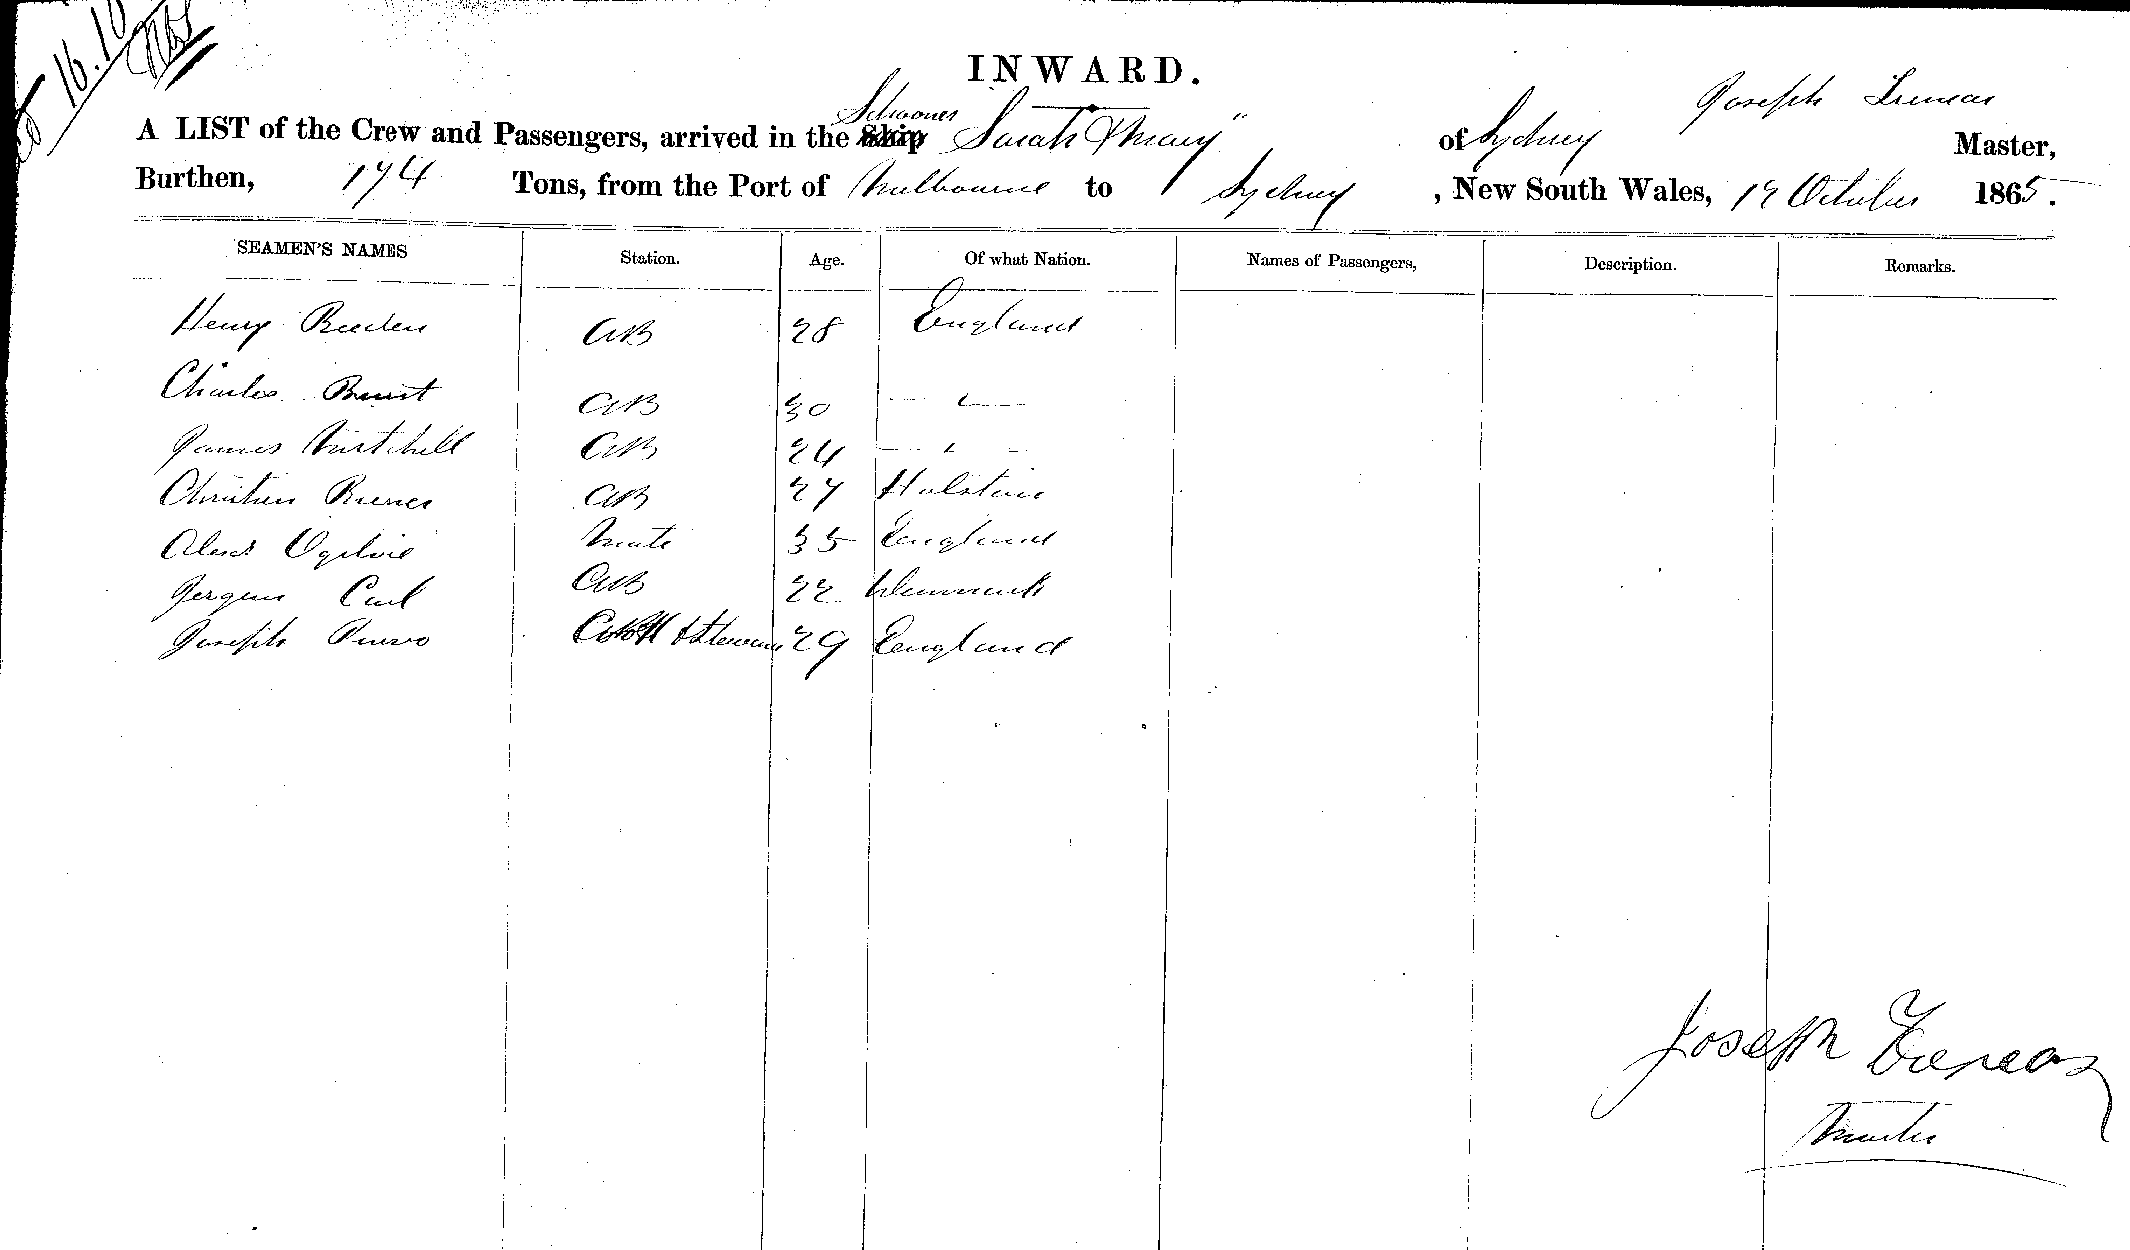 16.10
INWARD.
Joseph
Schooner
A LIST of the Crew and Passengers, arrived in the Ship "Sarah & Mary" of Sydney Master,
Burthen, 174 Tons, from the Port of Melbourne to Sydney, New South Wales, 19 October 1865.
SEAMEN'S NAMES Station. Age. Of what Nation. Names of Passengers, Description. Remarks.
Henry AB 28 England
Charles AB 30 - " -
James AB 24 - " -
Christian AB 27 Holstein
Alexr Ogilvie Mate 35 England
Jergen Carl AB 22 Denmark
Joseph Cook & Steward 29 England
Joseph
Master